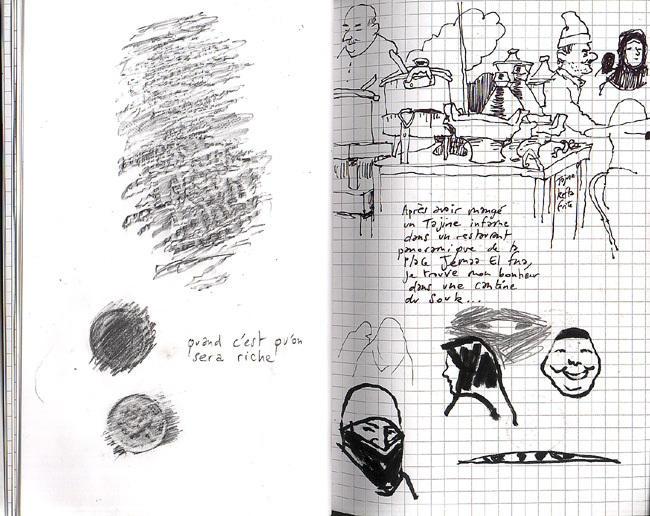 quand c'est qu'on
sera riche
Tajine
Kefta
frite
Après avoir mangé
un Tajine infame
dans un restaurant
panoramique de la
place Jemaa El fna,
je trouve mon bonheur
dans une cantine
du souk...